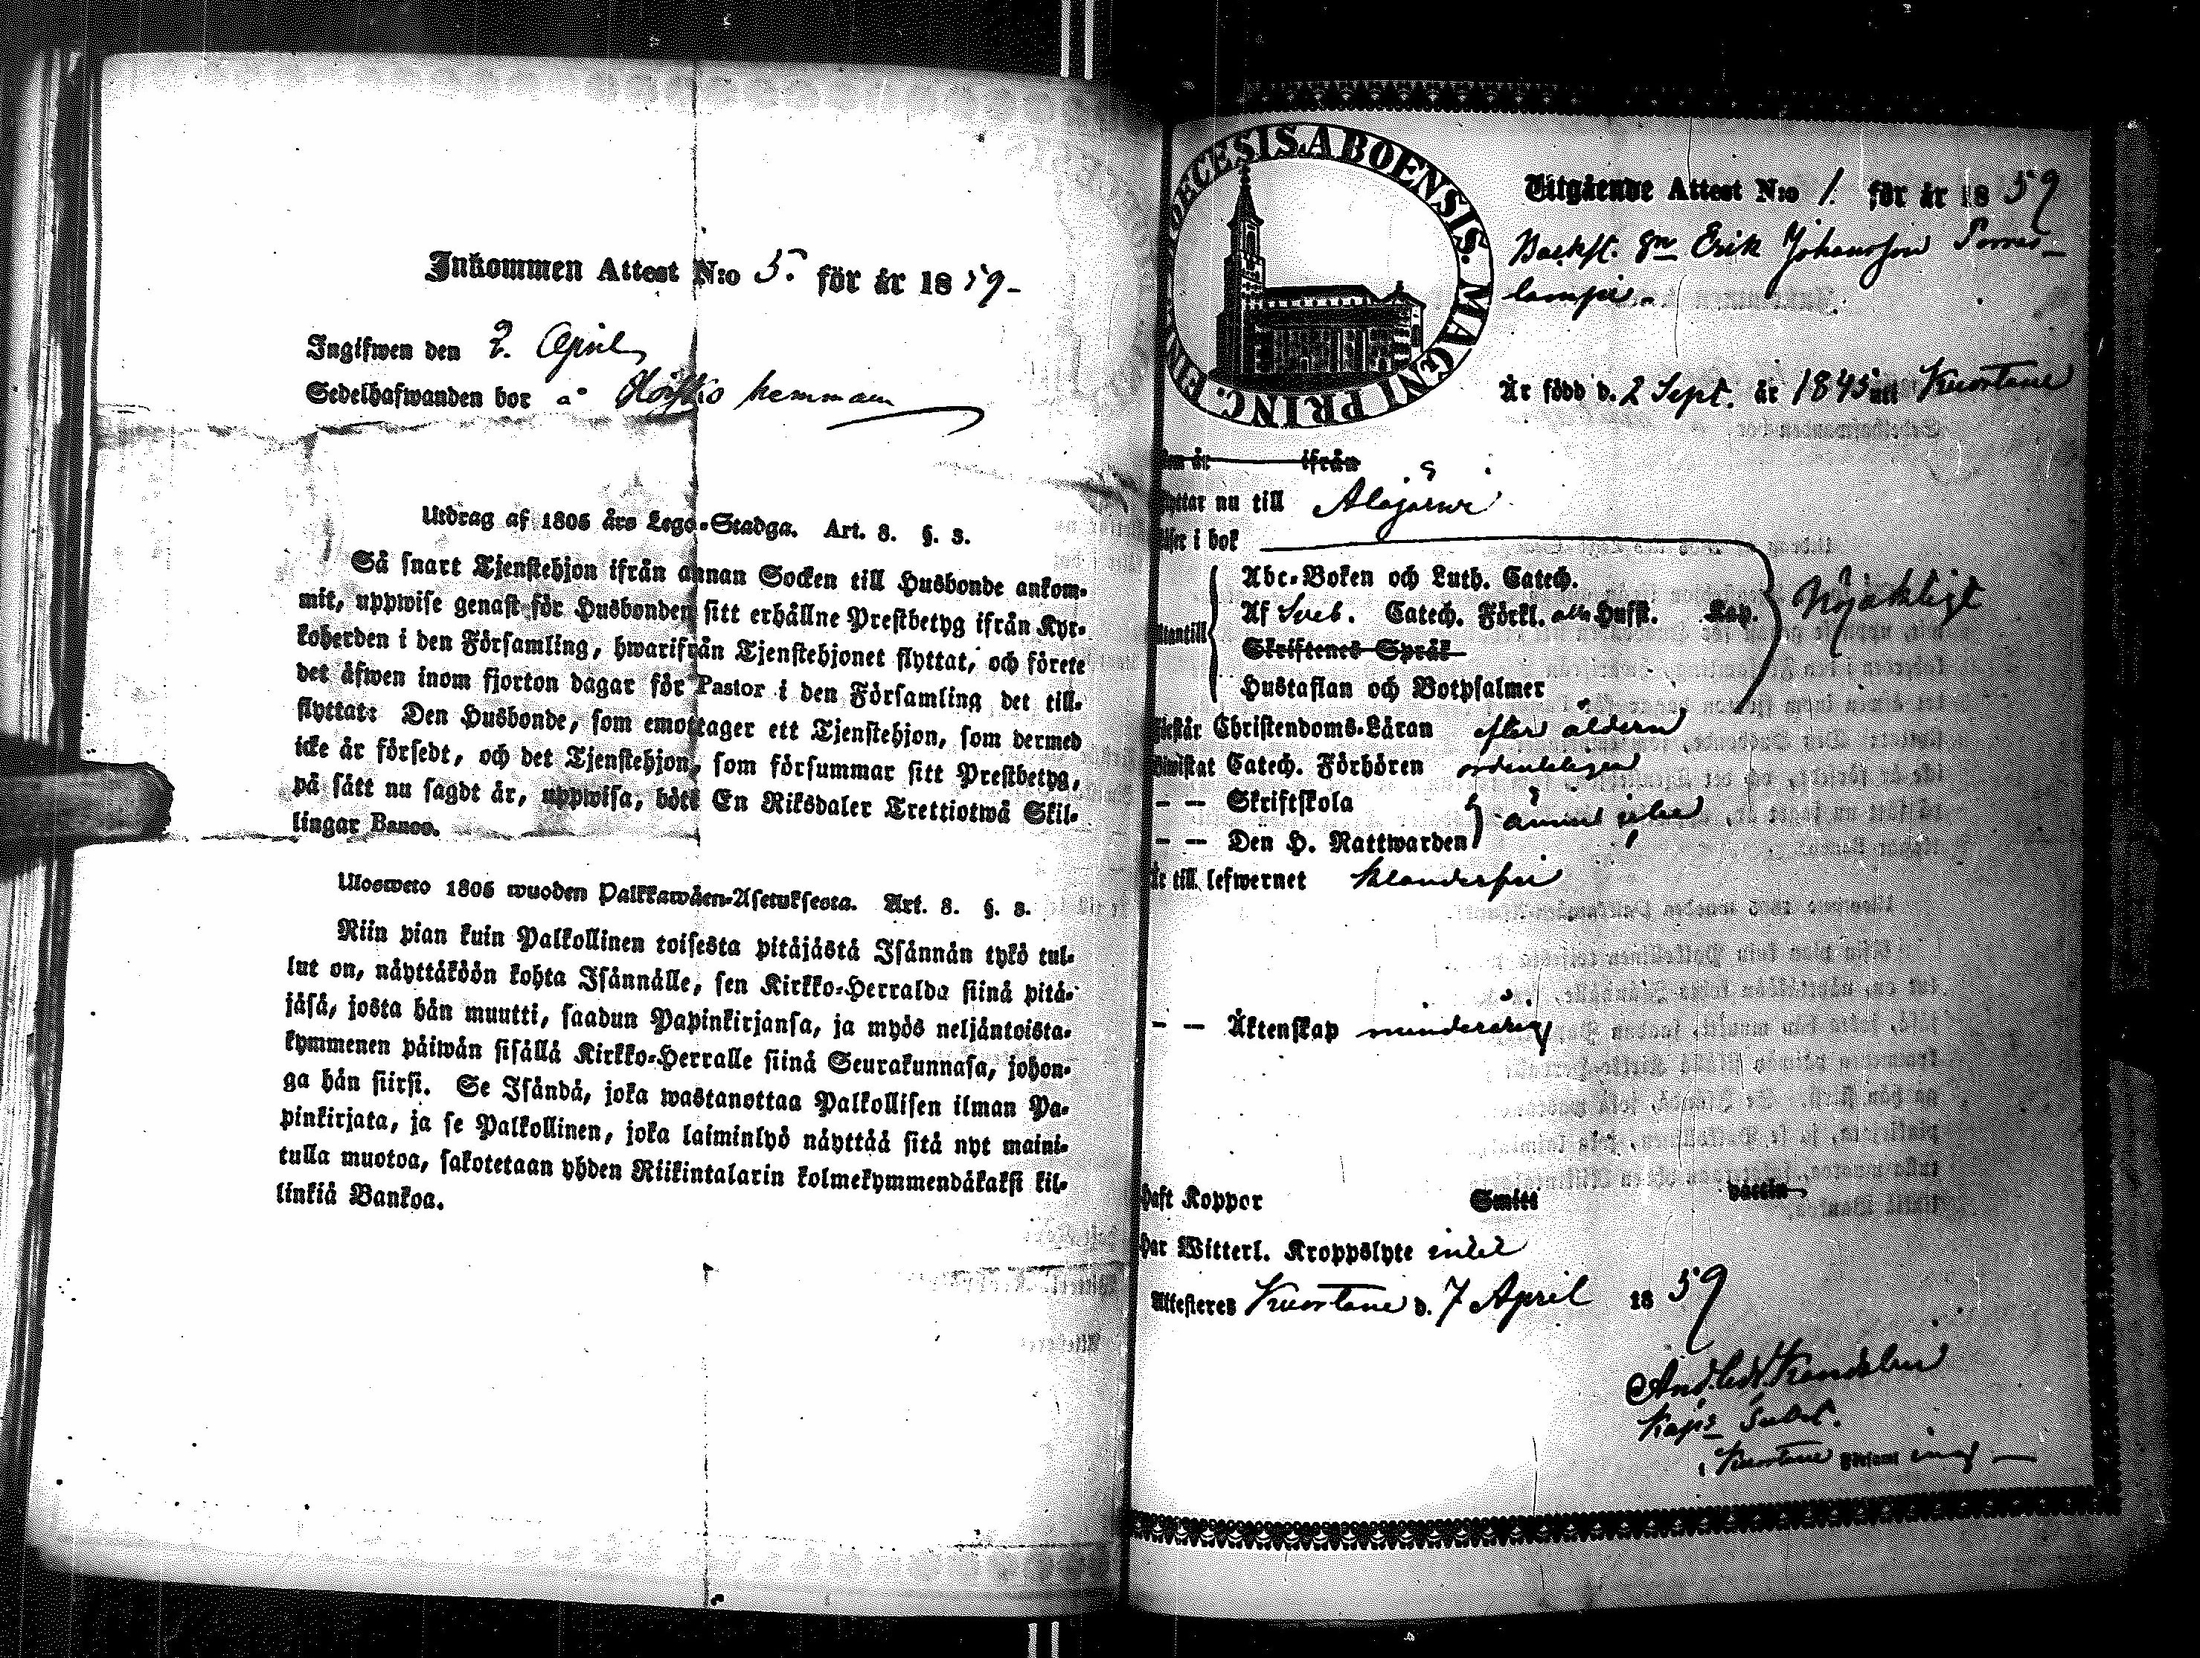 Inkommen Attest N:o 5. för år 1859-
Ingifwen den 2. April
Sedelhafwanden bor å Höykko hemman
Utdrag af 1805 års Lego-Stadga. Art. 8. §. 3.
Så snart Tjenstehjon ifrån annan Socken till Husbonde ankom-
mit, uppwise genast för Husbonden sitt erhållne Prestbetyg ifrån Kyr-
koherden i den Församling, hwarifrån Tjenstehjonet flyttat, och förete
det åfwen inom fjorton dagar för Pastor i den Församling det till-
flyttat: Den Husbonde, som emottager ett Tjenstehjon, som dermed
icke år försedt, och det Tjenstehjon, som försummar sitt Prestbetyg,
på sått nu sagdt år, uppwisa, böte En Riksdaler Trettiotwå Skil-
lingar Banco.
Ulosweto 1805 wuoden Palkkawåen-Asetuksesta. Art. 8. §. 3.
Niin pian kuin Palkollinen toisesta pitåjåstå Isånnån tykö tul-
lut on, nåyttåköön kohta Isånnålle, sen Kirkko-Herralda siinå pitå-
jåså, josta hån muutti, saadun Papinkirjansa, ja myös neljåntoista-
kymmenen påiwån sisållå Kirkko-Herralle siinå Seurakunnasa, johon-
ga hån siirsi. Se Isåndå, joka wastanottaa Palkollisen ilman Pa-
pinkirjata, ja se Palkollinen, joka laiminlyö nåyttåå sitå nyt maini-
tulla muotoa, sakotetaan yhden Riikintalarin kolmekymmendåkaksi kil-
linkiå Bankoa.
DIOECESIS ABOENSIS. MAGNI PRINC. FIN.
Utgående Attest N:o 1. för år 1859
Backst. gn Erik Johansson Porras-
lampi.
Är född d. 2 Sept. år 1845 uti Kuortane
år ifrån
flyttar nu till Alajärwi
Läser i bok
Abc-Boken och Luth. Catech.
Af Sveb. Catech. Förkl. Husft. Kap. Nöjaktligt
Utantill
Skriftenes Språk
Hustaflan och Botpsalmer
Förstår Christendoms-Läran efter åldern
Bewistat Catech. Förhören ordentligen
– – Skriftskola
– – Den H. Nattwarden ännu icke
Är till lefwernet klanderfri
– – Äktenskap minderårig
Haft Koppor Smitt
Har Witterl. Kroppslyte intet
Attesteras Kuortane d. 7 April 1859
Kaps Subst.
i Kuortane Församl